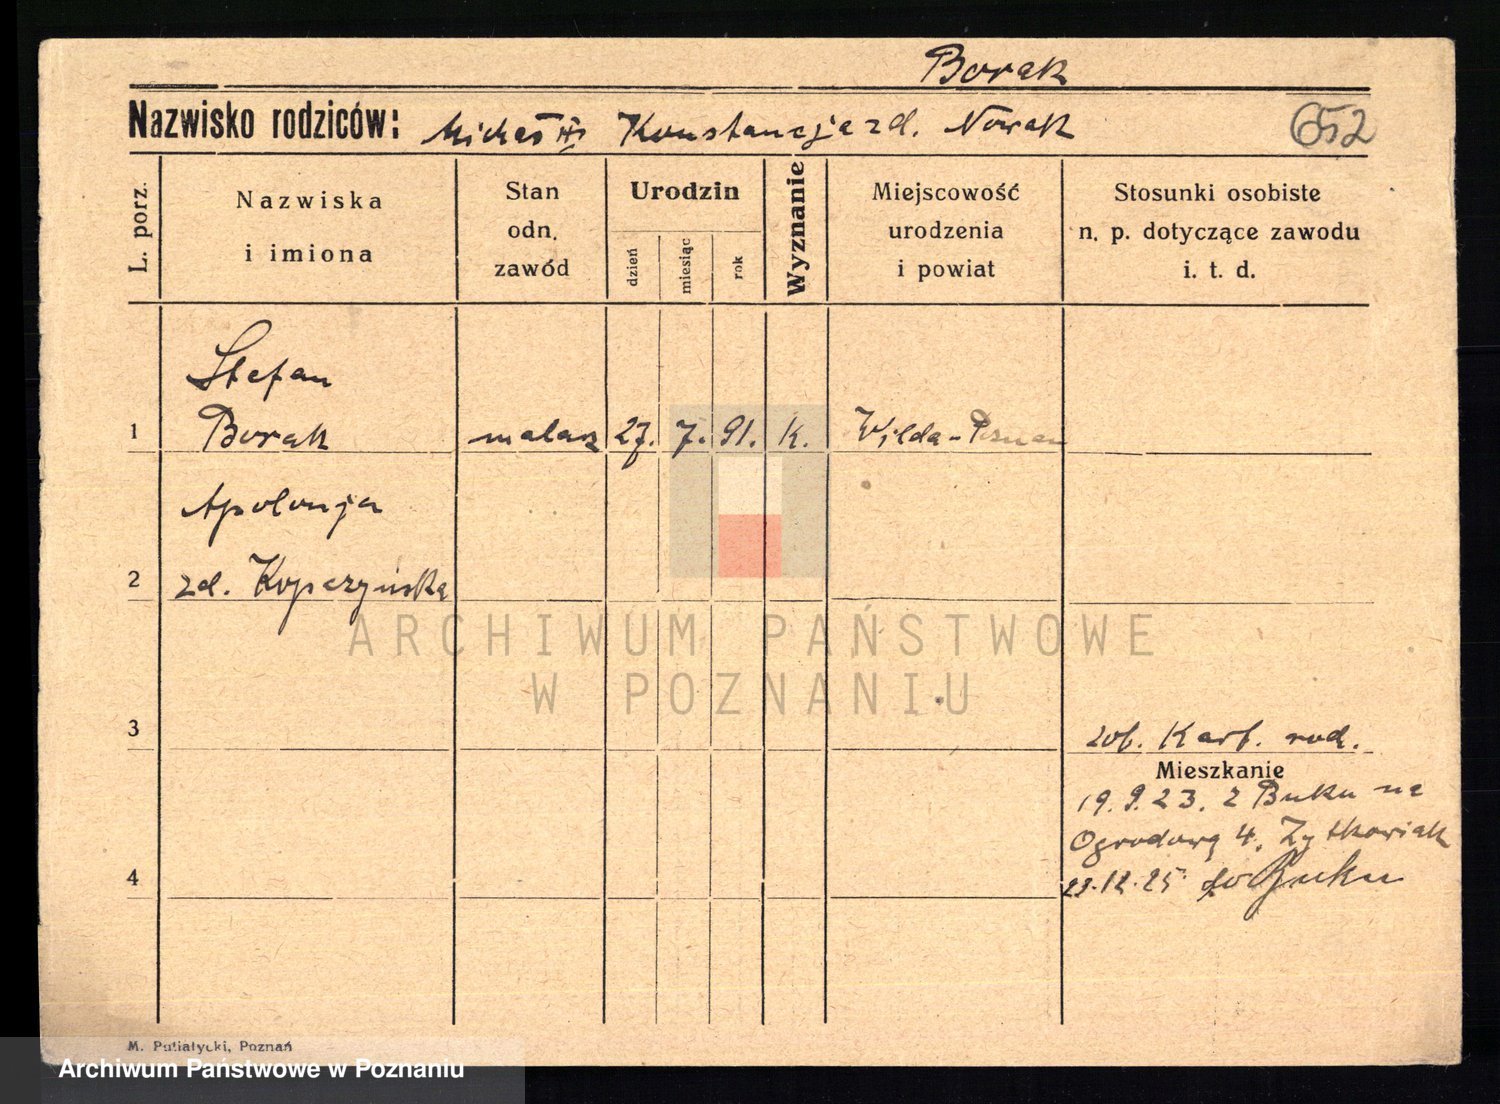 Borak
Nazwisko rodziców: Michał Konstancja zd. Nowak
652
L. porz.
Nazwiska
i imiona
Stan
odn.
zawód
Urodzin
dzień
miesiąc
rok
Wyznanie
Miejscowość
urodzenia
i powiat
Stosunki osobiste
n. p. dotyczące zawodu
i. t. d.
Stefan
1 Borak malarz 27. 7. 91. K. Wilda-Poznań
Apolonja
2 zd. Kopczyńska
ARCHIWUM PAŃSTWOWE
W POZNANIU
3 zob. Kart. rod.
Mieszkanie
19.9.23. z Buku na
Ogrodową 4. Żytkowiak
4 do Buku
M. Putiatycki, Poznań
Archiwum Państwowe w Poznaniu